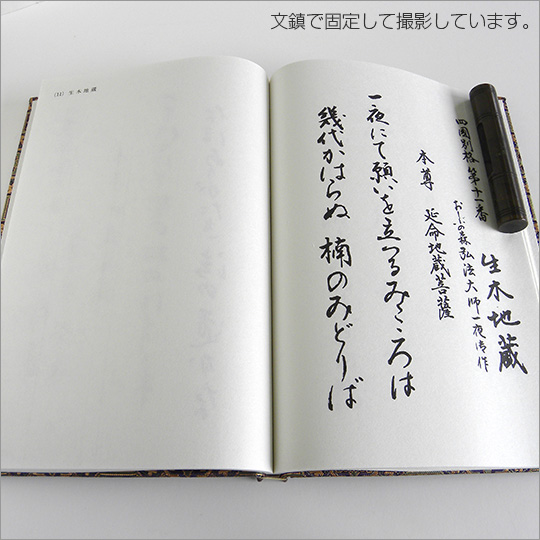 文鎮で固定して撮影しています。
(11) 生木地蔵
四國別格第十一番
生木地蔵
弘法大師一夜御作
本尊 延命地蔵菩薩
一夜にて願いを立つるみこころは
幾代かはらぬ楠のみどりば